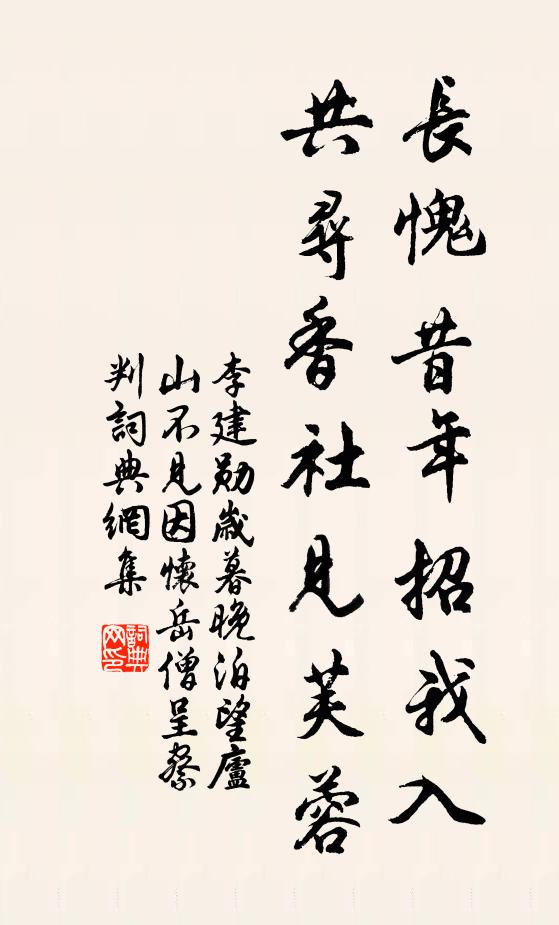 長愧昔年招我入
共尋香社見芙蓉
李建勛歲暮晚泊望廬
山不見因懷岳僧呈察
判詞典網集
詞典网印